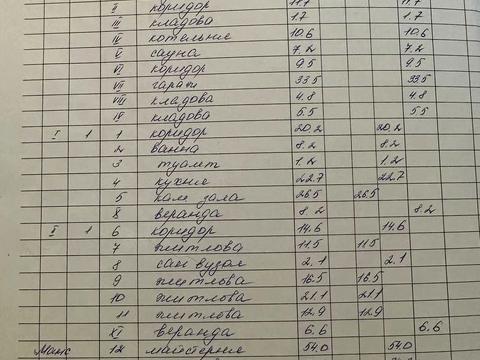 II коридор 11.7 11.7
III кладова 1.7 1.7
IV котельние 10.6 10.6
V сауна 7.2 7.2
VI коридор 9.5 9.5
VII гараж 33.5 33.5
VIII кладова 4.8 4.8
IX кладова 5.5 5.5
I 1 1 коридор 20.2 20.2
2 ванна 8.2 8.2
3 туалет 1.2 1.2
4 кухние 22.7 22.7
5 кам зала 26.5 26.5
8 веранда 8.2 8.2
II 1 6 коридор 14.6 14.6
7 житлова 11.5 11.5
8 сан вузол 2.1 2.1
9 житлова 16.5 16.5
10 житлова 21.1 21.1
11 житлова 12.9 12.9
XI веранда 6.6 6.6
Манс 12 майстерние 54.0 54.0